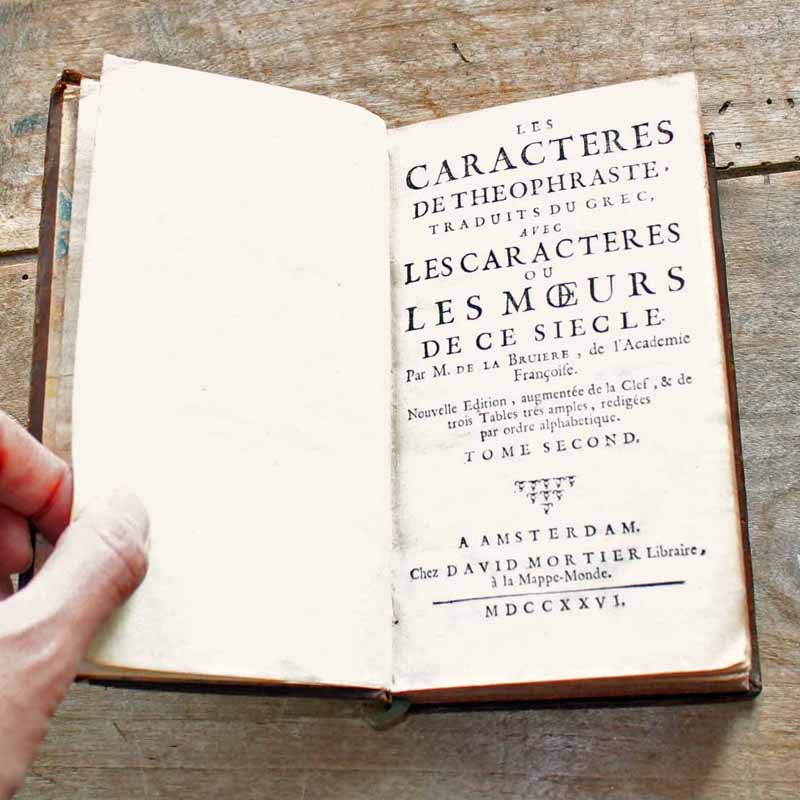 LES
CARACTERES
DE THEOPHRASTE,
TRADUITS DU GREC,
AVEC
LES CARACTERES
OU
LES MŒURS
DE CE SIECLE.
Par M. DE LA BRUIERE, de l'Academie
Françoiſe.
Nouvelle Edition, augmentée de la Clef, & de
trois Tables très amples, redigées
par ordre alphabetique.
TOME SECOND.
A AMSTERDAM.
Chez DAVID MORTIER Libraire,
à la Mappe-Monde.
MDCCXXVI.